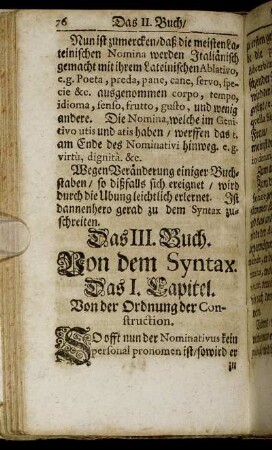 76 Das II. Buch/
Nun ist zumercken/ daß die meisten La-
teinischen Nomina werden Italiänisch
gemacht mit ihrem Lateinischen Ablativo,
e.g. Poeta, preda, pane, cane, servo, spe-
cie &c. ausgenommen corpo, tempo,
idioma, senso, frutto, gusto, und wenig
andere. Die Nomina, welche im Geni-
tivo utis und atis haben / werffen das t.
am Ende des Nominativi hinweg. e.g.
virtù, dignità. &c.
Wegen Veränderung einiger Buch-
staben / so dißfalls sich ereignet / wird
durch die Ubung leichtlich erlernet. Ist
dannenhero gerad zu dem Syntax zu-
schreiten.
Das III. Buch.
Von dem Syntax.
Das I. Capitel.
Von der Ordnung der Con-
struction.
SO offt nun der Nominativus kein
personal pronomen ist / so wird er
zu